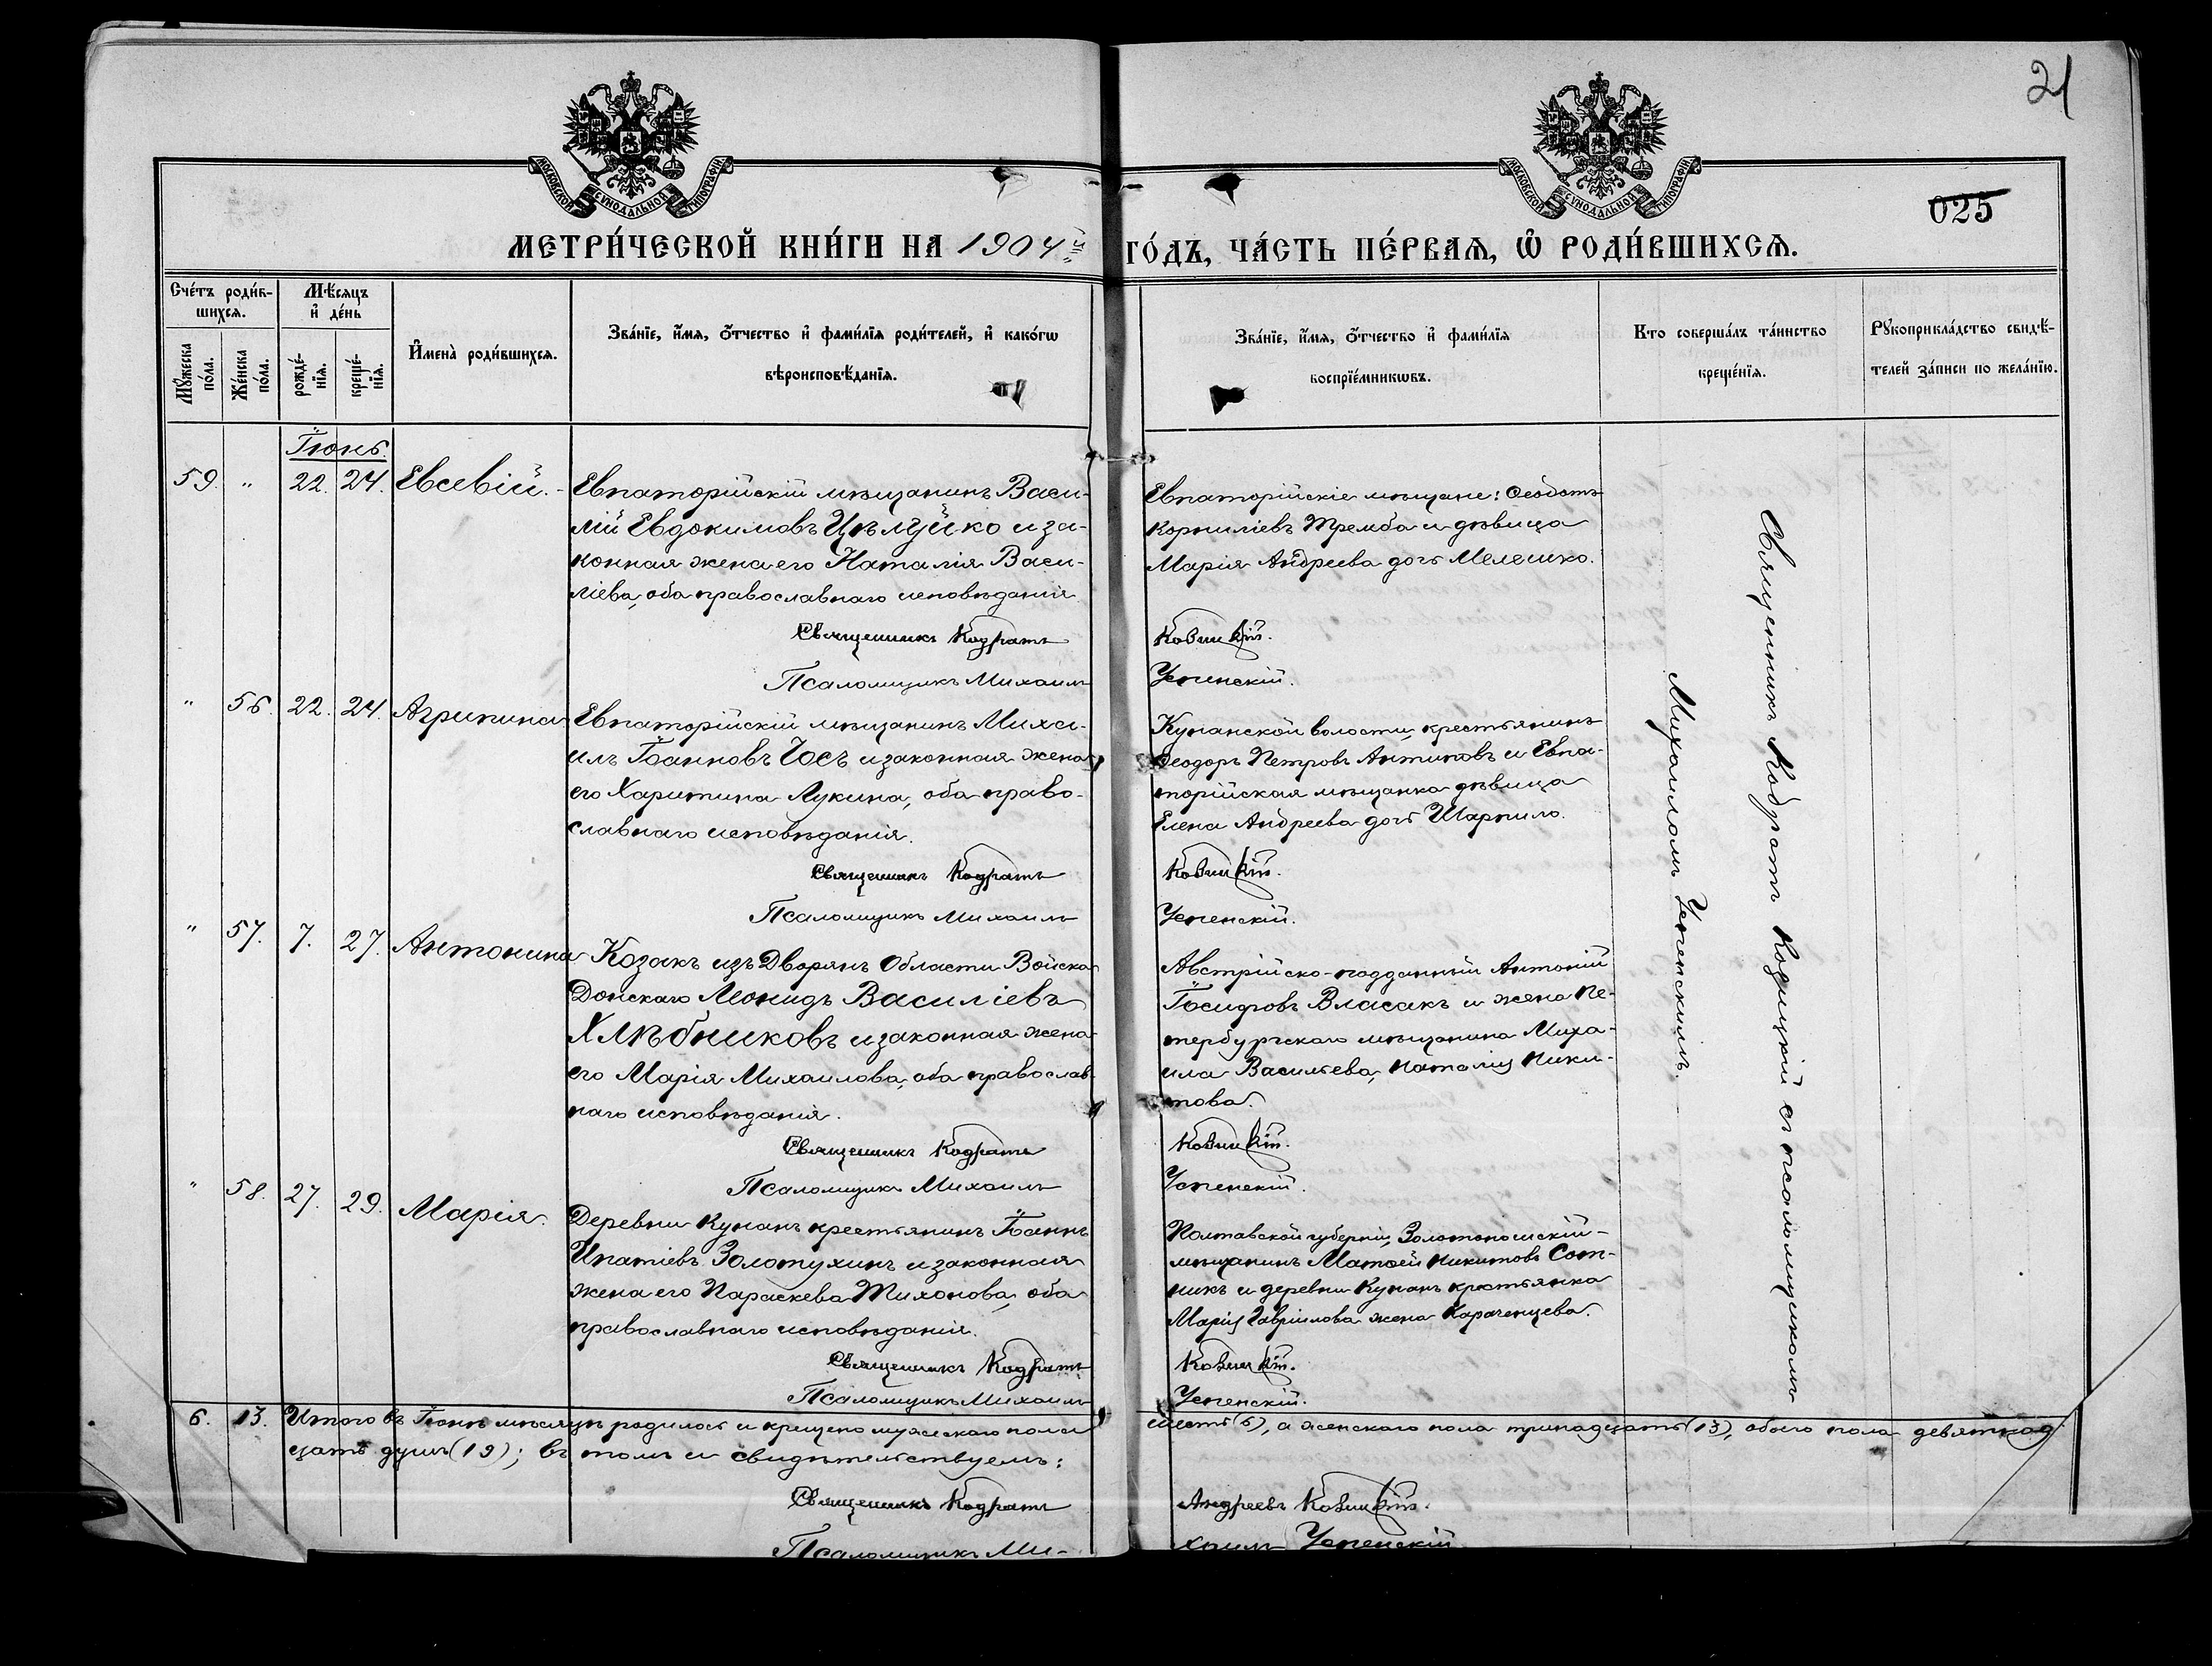 21
МОСКОВСКОЙ СѴНОДАЛЬНОЙ ТИПОГРАФІИ
МОСКОВСКОЙ СѴНОДАЛЬНОЙ ТИПОГРАФІИ
025
МЕТРИ́ЧЕСКОЙ КНИ́ГИ НА 1904 й
ГО́ДЪ, ЧА́СТЬ ПЕ́РВАЯ, Ѡ РОДИ́ВШИХСЯ.
Сче́тъ роди́в-
шихся.
Мѣ́сяцъ
и де́нь
Мꙋжеска
по́ла.
Же́нска
по́ла.
рожде́-
нїя.
креще́-
нїя.
Имена̀ роди́вшихся.
Зва́нїе, и́мя, о́тчество и фами́лїя роди́телей, и како́гѡ
вѣроисповѣ́данїя.
Зва́нїе, и́мя, о́тчество и фами́лїя
воспрїе́мникѡвъ.
Кто соверша́лъ та́инство
креще́нїя.
Рꙋкоприкла́дство свидѣ́-
телей за́писи по жела́нїю.
Іюнь.
59. " 22. 24. Евсевій.
Евпаторійскій мѣщанинъ Васи-
лій Евдокимовъ Цѣлуйко и за-
конная жена его Наталія Васи-
ліева, оба православнаго исповѣданія
Священникъ Кодратъ
Псаломщикъ Михаилъ
Евпаторійскіе мѣщане: Ѳеодотъ
Корниліевъ Тремба и дѣвица
Марія Андреева дочь Мелешко.
Ковицкій.
Успенскій.
" 56. 22. 24. Агрипина
Евпаторійскій мѣщанинъ Миха-
илъ Іоанновъ Гось и законная жена
его Харитина Лукина, оба право-
славнаго исповѣданія.
Священникъ Кодратъ
Псаломщикъ Михаилъ
Кунанской волости, крестьянинъ
Ѳеодоръ Петровъ Антиповъ и Евпа-
торійская мѣщанка дѣвица
Елена Андреева дочь Шарпило.
Ковицкій.
Успенскій.
" 57. 7. 27. Антонина
Козакъ изъ Дворянъ Области Войска
Донскаго Леонидъ Василіевъ
Хлѣбниковъ и законная жена
его Марія Михаилова, оба православ-
наго исповѣданія.
Священникъ Кодратъ
Псаломщикъ Михаилъ
Австрійско-подданный Антоній
Іосифовъ Власакъ и жена Пе-
тербургскаго мѣщанина Миха-
ила Васильева, Наталія Ники-
това.
Ковицкій.
Успенскій.
" 58. 27. 29. Марія.
Деревни Кунанъ крестьянинъ Іоаннъ
Ипатіевъ Золотухинъ и законная
жена его Параскева Тихонова, оба
православнаго исповѣданія.
Священникъ Кодратъ
Псаломщикъ Михаилъ
Полтавской губерніи, Золотоношскій
мѣщанинъ Матѳей Никитовъ Сот-
никъ и деревни Кунанъ крестьянка
Марія Гавріилова жена Караченцева.
Ковицкій.
Успенскій.
Священникъ Кодратъ Ковицкій съ псаломщикомъ
Михаиломъ Успенскимъ.
6. 13. Итого въ Іюнѣ мѣсяцѣ родилось и крещено мужескаго пола
шесть (6), а женскаго пола тринадцать (13), обоего пола девятнад-
цать душъ (19); въ томъ и свидѣтельствуемъ:
Священникъ Кодратъ Андреевъ Ковицкій.
Псаломщикъ Ми-
хаилъ Успенскій.